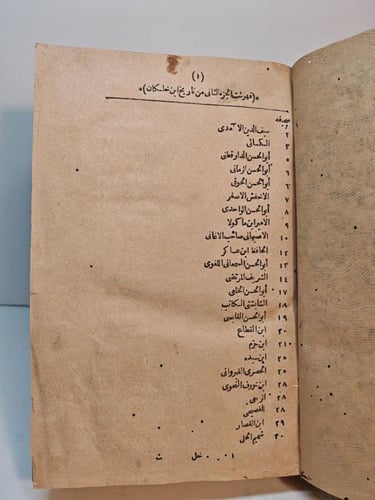 (١)
*(فهرست الجزء الثانى من تاريخ ابن خلكان)*
صحيفه
٢ سيف الدين الآمدى
٣ الكسائى
٥ أبو الحسن الدارقطنى
٦ أبو الحسن الرمانى
٦ أبو الحسن الحوفى
٧ الاخفش الاصغر
٨ أبو الحسن الواحدى
٩ الامير ابن ماكولا
١٠ الاصبهانى صاحب الاغانى
١٢ الحافظ ابن عساكر
١٣ أبو الحسن السمسمانى اللغوى
١٤ الشريف المرتضى
١٧ أبو الحسن الخلعى
١٨ الشابشتى الكاتب
١٩ أبو الحسن القابسى
٢٠ ابن القطاع
٢١ ابن حزم
٢٥ ابن سيده
٢٥ الحصرى القيروانى
٢٨ ابن خروف النحوى
٢٨ الربعى
٢٨ الفصيحى
٢٩ ابن القصار
٣٠ شميم الحلى
١ خل ت